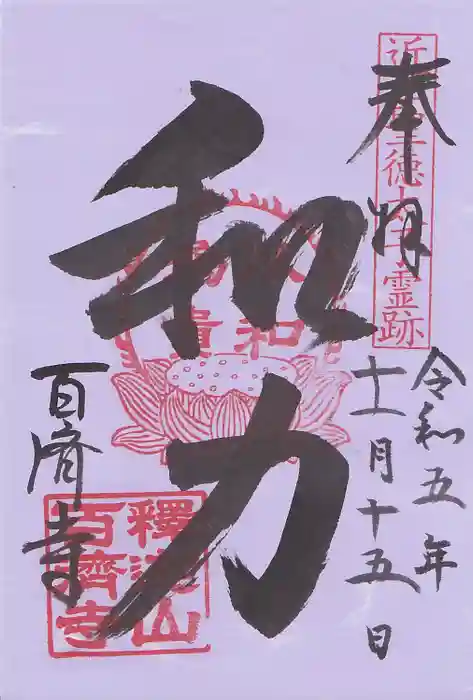 近江聖徳太子霊跡
奉拝
令和五年
十一月十五日
以和為貴
和力
百済寺
釋迦山
百濟寺